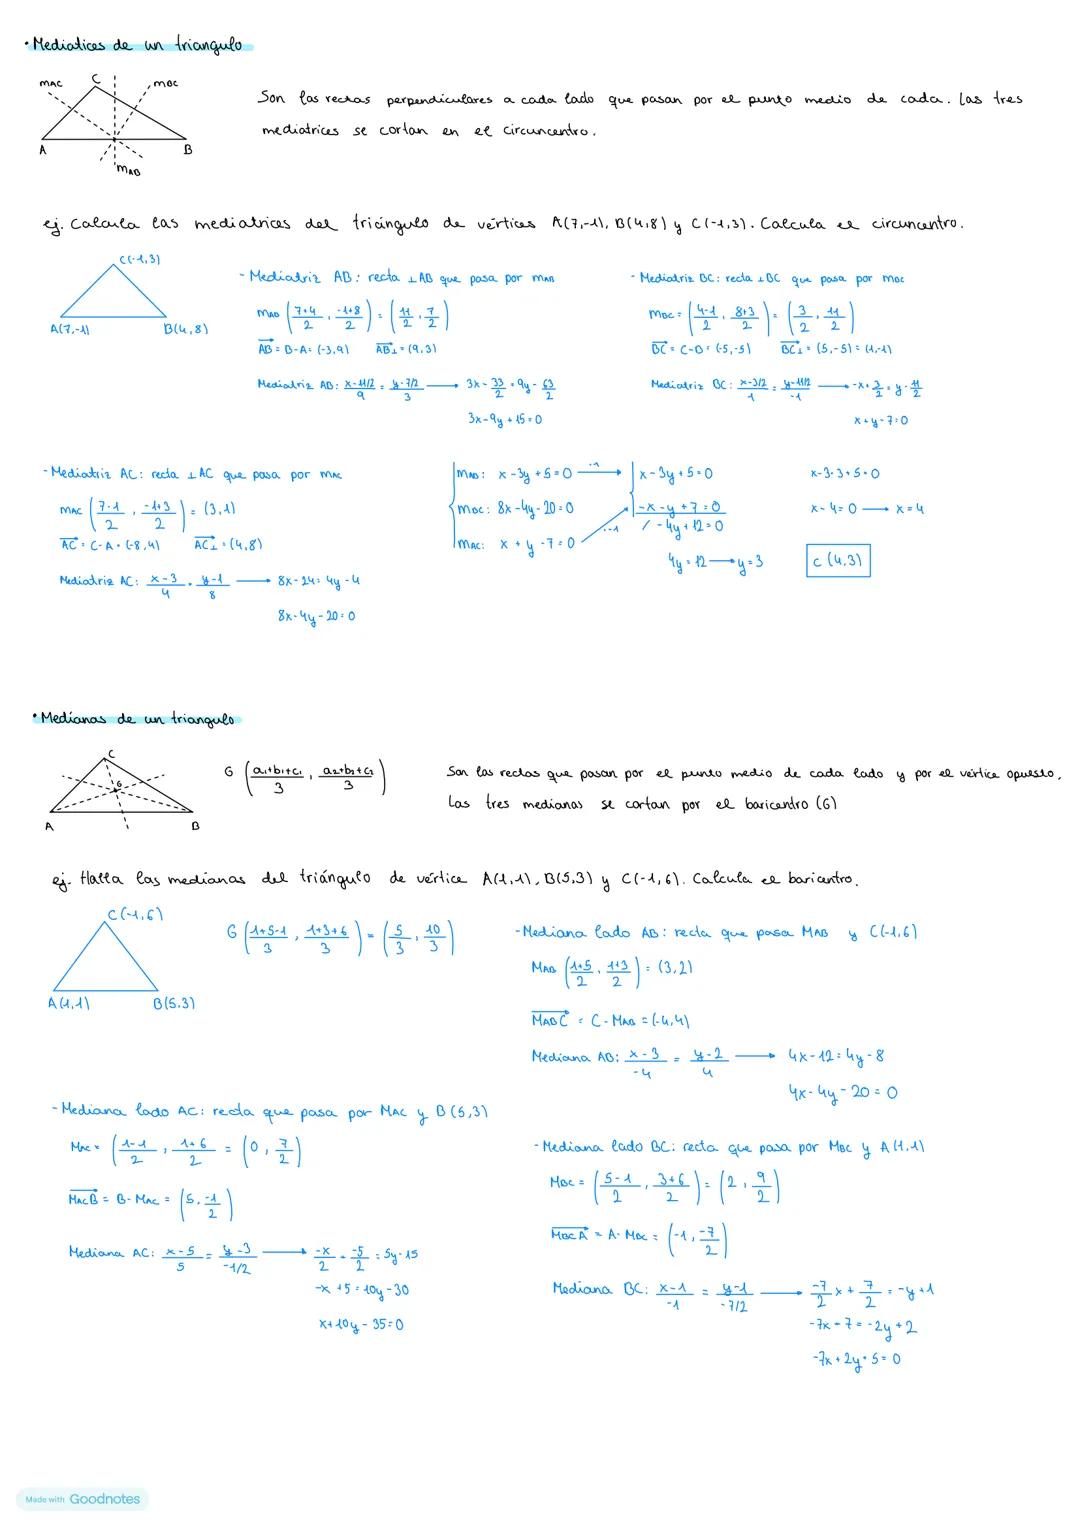 · Mediatices de un triangulo
mAC
C
mBC
A
B
mAB
Son las rectas perpendiculares a cada lado que pasan por el punto medio de cada. Las tres
mediatrices se cortan en el circuncentro.
ej. Calcula las mediatrices del triángulo de vértices A(7,-1), B(4,8) y C(-1,3). Calcula el circuncentro.
C(-1,3)
A(7,-1)
B(4,8)
- Mediatriz AB: recta ⊥ AB que pasa por mAB
mAB (7+4/2, -1+8/2) = (11/2, 7/2)
AB = B-A = (-3,9) AB⊥ = (9,3)
Mediatriz AB: x-11/2/9 = y-7/2/3 → 3x - 33/2 = 9y - 63/2
3x-9y+15=0
- Mediatriz BC: recta ⊥ BC que pasa por mBC
mBC = (4-1/2, 8+3/2) = (3/2, 11/2)
BC = C-B = (-5,-5) BC⊥ = (5,-5) = (1,-1)
Mediatriz BC: x-3/2/1 = y-11/2/-1 → -x+3/2 = y-11/2
x+y-7=0
- Mediatriz AC: recta ⊥ AC que pasa por mAC
mAC (7-1/2, -1+3/2) = (3,1)
AC = C-A = (-8,4) AC⊥ = (4,8)
Mediatriz AC: x-3/4 = y-1/8 → 8x-24 = 4y-4
8x-4y-20=0
mAB: x-3y+5=0 → x-3y+5=0
mBC: 8x-4y-20=0 -x-y+7=0
mAC: x+y-7=0 / -4y+12=0
4y=12 → y=3
x-3·3+5=0
x-4=0 → x=4
C (4,3)
· Medianas de un triangulo
C
G
A
B
G (a₁+b₁+c₁/3, a₂+b₂+c₂/3)
Son las rectas que pasan por el punto medio de cada lado y por el vértice opuesto,
Las tres medianas se cortan por el baricentro (G)
ej. Halla las medianas del triángulo de vértice A(1,1), B(5,3) y C(-1,6). Calcula el baricentro.
C(-1,6)
A(1,1)
B(5,3)
G (1+5-1/3, 1+3+6/3) = (5/3, 10/3)
-Mediana lado AB: recta que pasa MAB y C(-1,6)
MAB (1+5/2, 1+3/2) = (3,2)
MABC = C-MAB = (-4,4)
Mediana AB: x-3/-4 = y-2/4 → 4x-12 = 4y-8
4x-4y-20=0
- Mediana lado AC: recta que pasa por MAC y B(5,3)
MAC = (1-1/2, 1+6/2 = (0, 7/2)
MACB = B-MAC = (5, -1/2)
Mediana AC: x-5/5 = y-3/-1/2 → -x/2 - -5/2 = 5y-15
-x+5=10y-30
x+10y-35=0
- Mediana lado BC: recta que pasa por MBC y A(1,1)
MBC = (5-1/2, 3+6/2) = (2, 9/2)
MBCA = A-MBC = (-1, -7/2)
Mediana BC: x-1/-1 = y-1/-7/2 → -7/2x + 7/2 = -y+1
-7x+7=-2y+2
-7x+2y+5=0
Made with Goodnotes